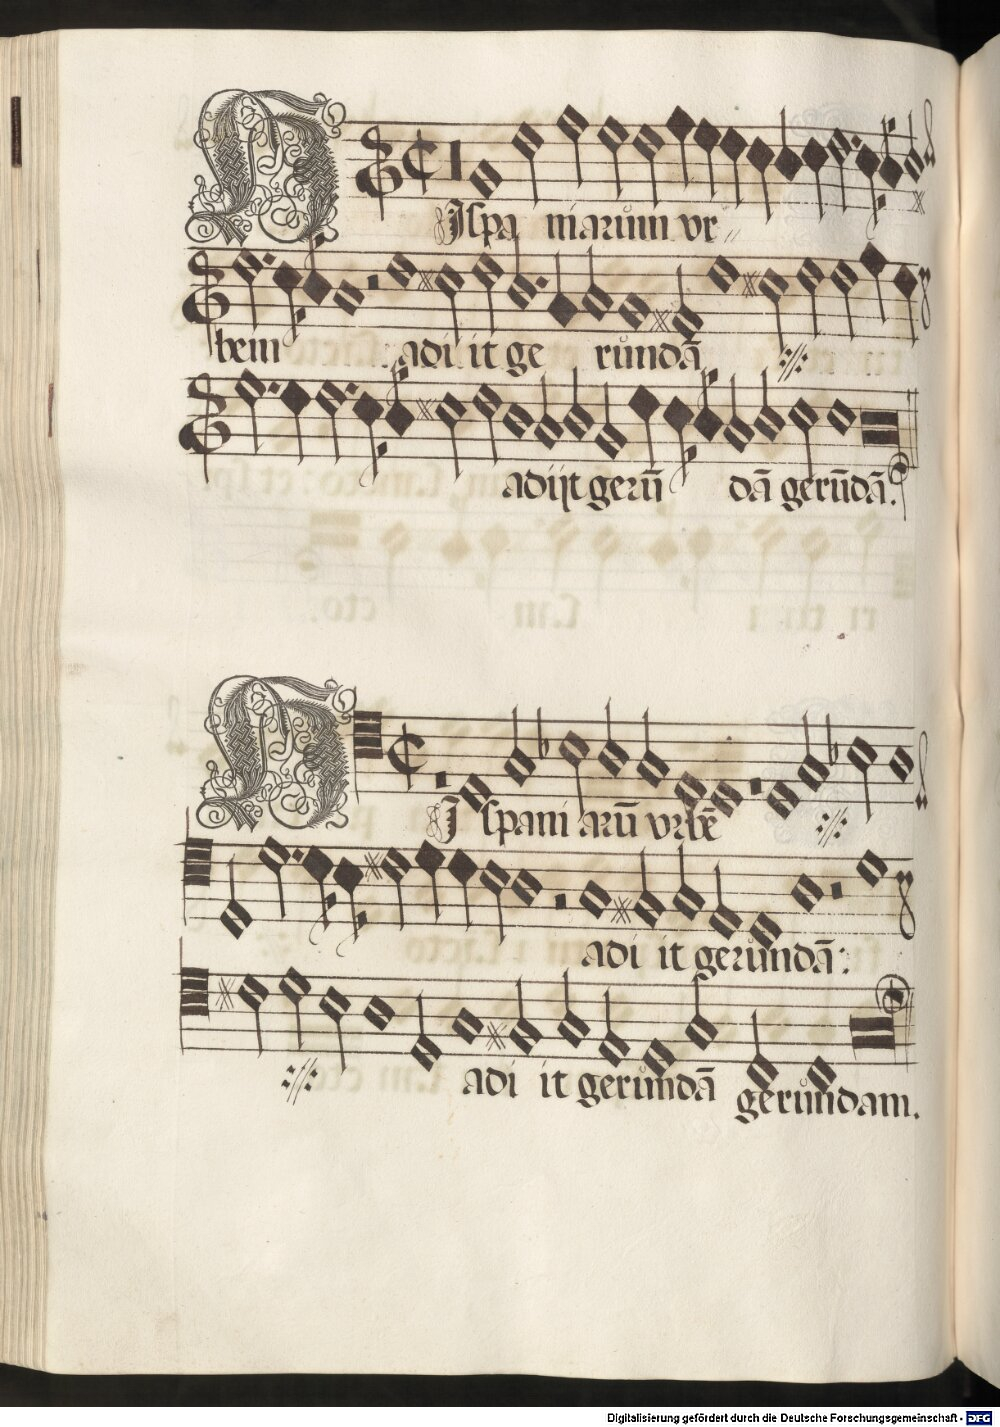 HIspa niarum vr
bem adi it ge rundā
adijt gerū dā gerūdā.
HIspani arū vrbē
adi it gerundā:
adi it gerundā gerundam.
Digitalisierung gefördert durch die Deutsche Forschungsgemeinschaft - DFG